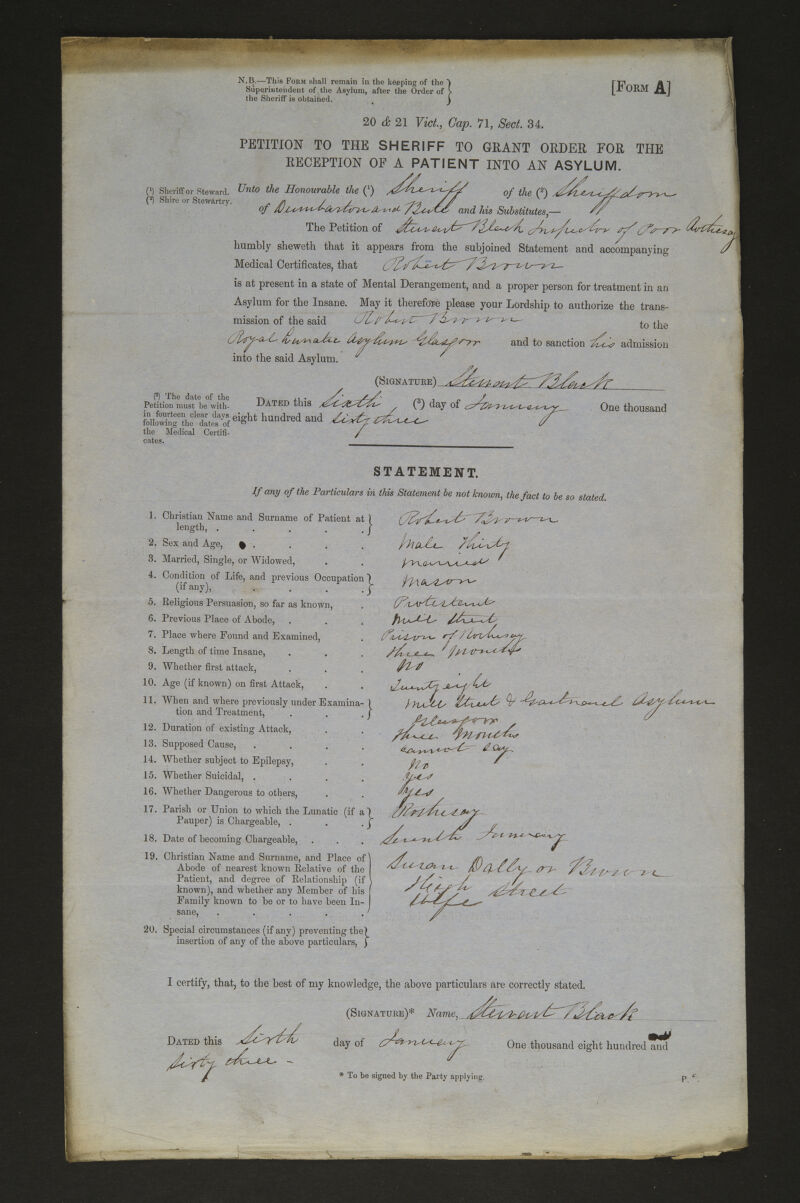 N.B.—This Form shall remain in the keeping of the
Superintendent of the Asylum, after the Order of
the Sheriff is obtained.
[Form A]
20 & 21 Vict., Cap. 71, Sect. 34.
PETITION TO THE SHERIFF TO GRANT ORDER FOR THE
RECEPTION OF A PATIENT INTO AN ASYLUM.
(1) Sheriff or Steward.
(2) Shire or Stewartry.
Unto the Honourable the (1) Sheriff of the (2) Sheriffdom
of Dumbarton and Bute and his Substitutes,—
The Petition of Stewart Black Inspector of Poor Rothesay
humbly sheweth that it appears from the subjoined Statement and accompanying
Medical Certificates, that Robert Brown
is at present in a state of Mental Derangement, and a proper person for treatment in an
Asylum for the Insane. May it therefore please your Lordship to authorize the trans-
mission of the said Robert Brown to the
Royal Lunatic Asylum Glasgow and to sanction his admission
into the said Asylum.
(Signature) Stewart Black
(3) The date of the
Petition must be with-
in fourteen clear days
following the dates of
the Medical Certifi-
cates.
Dated this Sixth (3) day of January One thousand
eight hundred and Sixty three
STATEMENT.
If any of the Particulars in this Statement be not known, the fact to be so stated.
1. Christian Name and Surname of Patient at
length, . . . . . Robert Brown
2. Sex and Age, . . . . Male Thirty
3. Married, Single, or Widowed, . . married
4. Condition of Life, and previous Occupation
(if any), . . . . Mason
5. Religious Persuasion, so far as known, . Protestant
6. Previous Place of Abode, . . . Mill Street
7. Place where Found and Examined, . Prison of Rothesay
8. Length of time Insane, . . . three Months
9. Whether first attack, . . . No
10. Age (if known) on first Attack, . . Twenty eight
11. When and where previously under Examina-
tion and Treatment, . . . Mill Street & Gartnavel Asylum
Glasgow
12. Duration of existing Attack, . . three Months
13. Supposed Cause, . . . . cannot say
14. Whether subject to Epilepsy, . . No
15. Whether Suicidal, . . . . Yes
16. Whether Dangerous to others, . . Yes
17. Parish or Union to which the Lunatic (if a
Pauper) is Chargeable, . . . Rothesay
18. Date of becoming Chargeable, . . . Seventh January
19. Christian Name and Surname, and Place of
Abode of nearest known Relative of the
Patient, and degree of Relationship (if
known), and whether any Member of his
Family known to be or to have been In-
sane, . . . . .
Susan Dally or Brown
High Street
Wife
20. Special circumstances (if any) preventing the
insertion of any of the above particulars,
I certify, that, to the best of my knowledge, the above particulars are correctly stated.
(Signature)* Name, Stewart Black
Dated this Sixth day of January One thousand eight hundred and
Sixty three -
* To be signed by the Party applying.